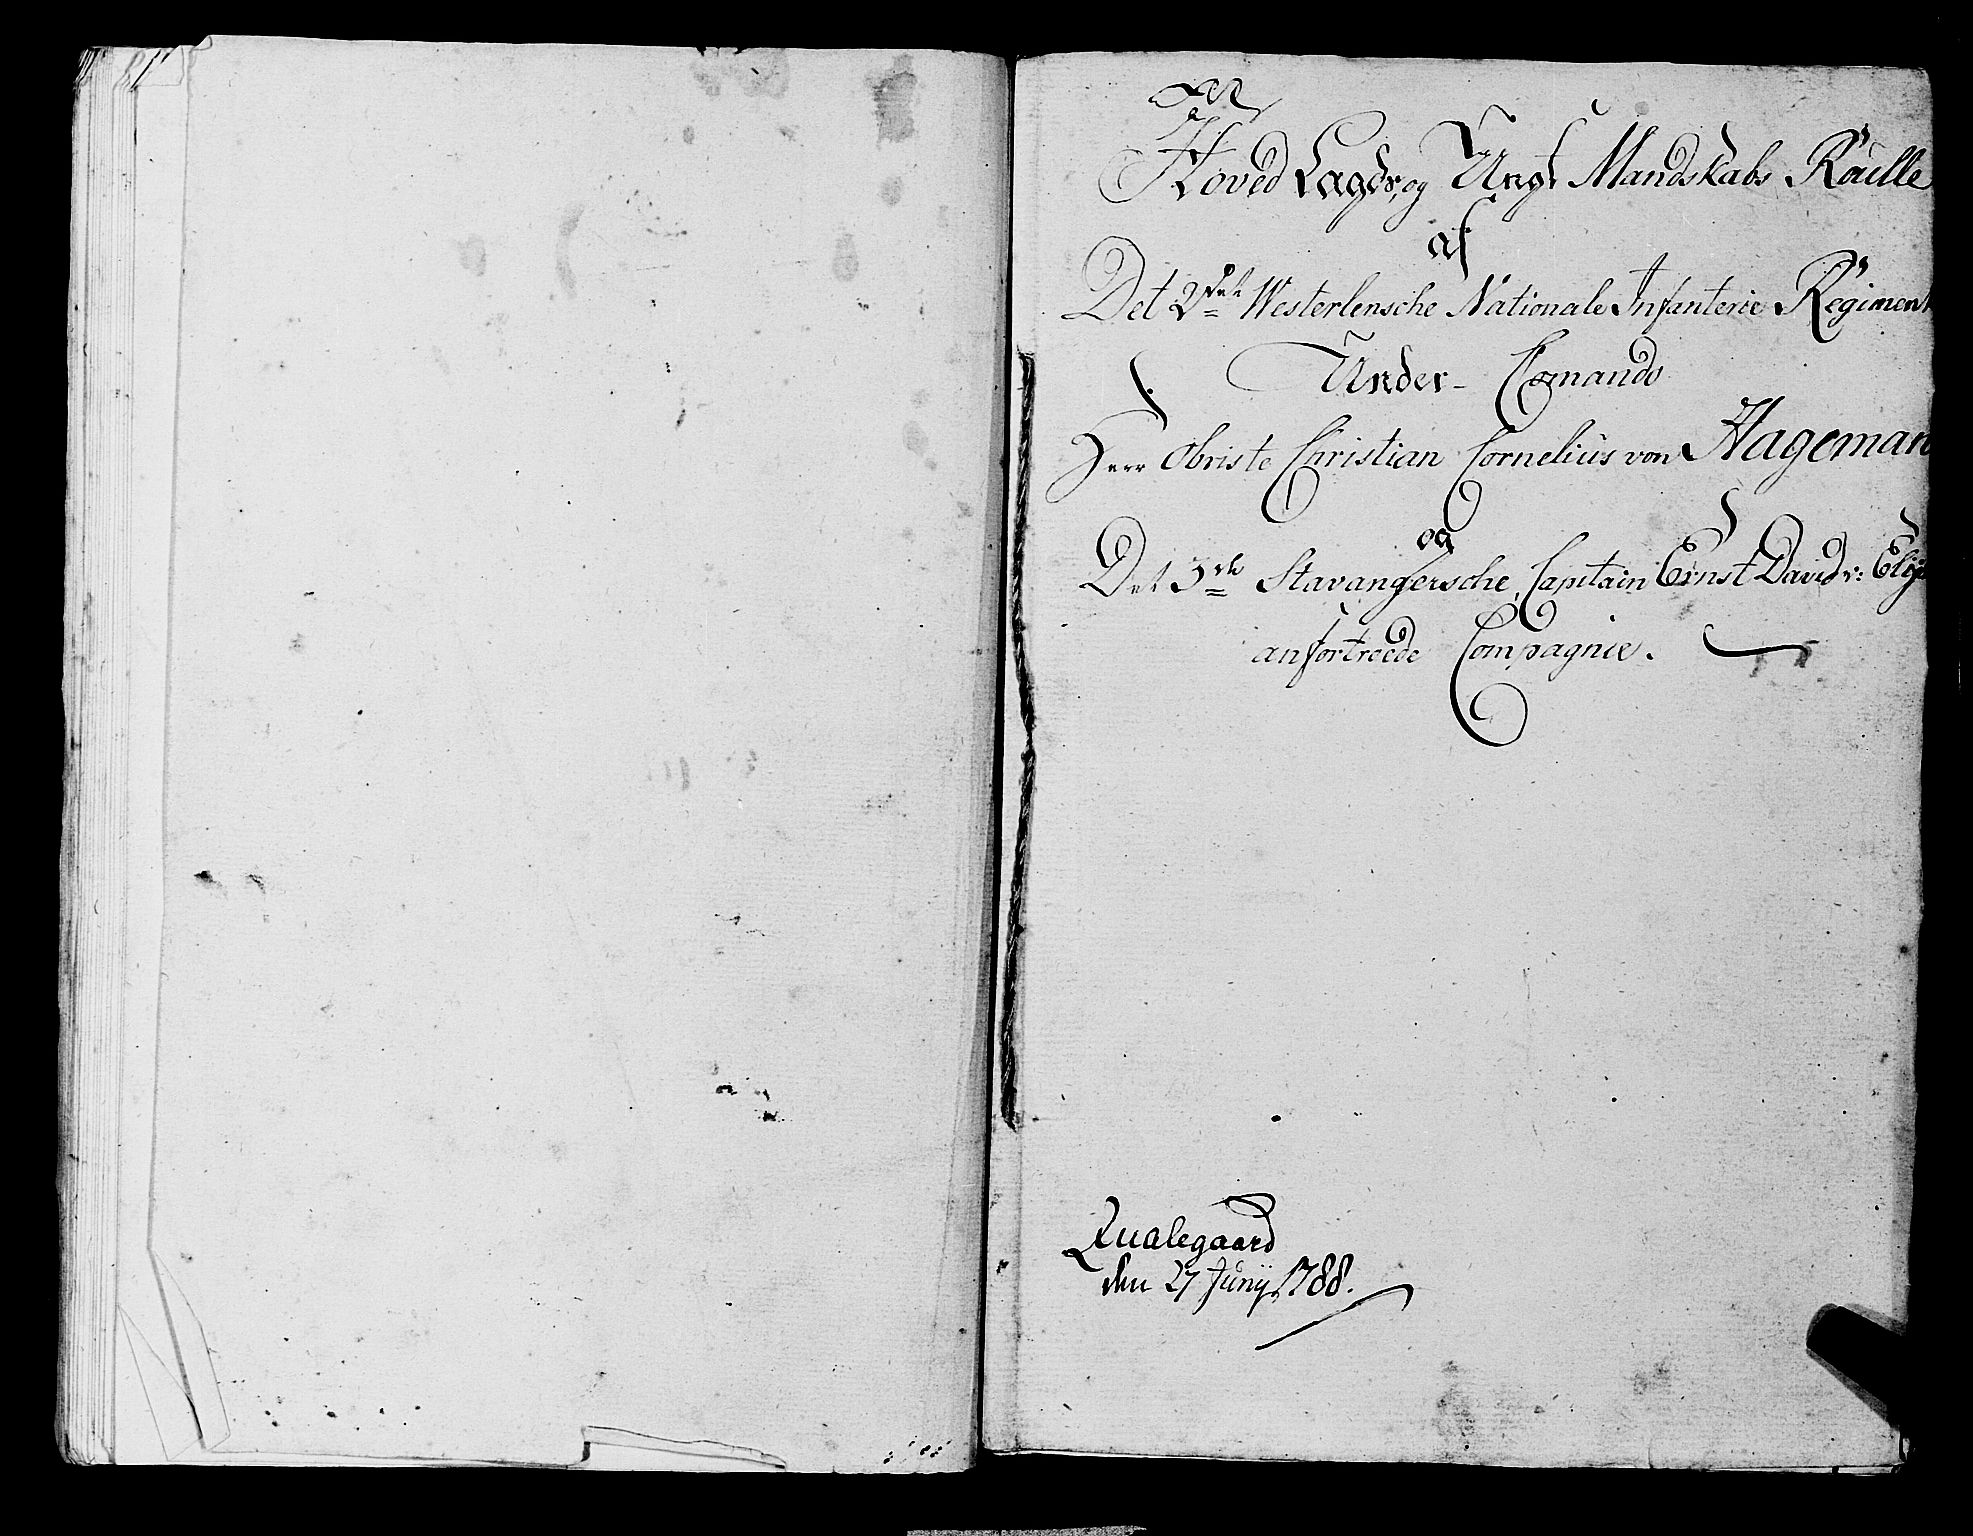 Hoved Lægds, og Ungt Mandskabs Roulle
af
Det 2det Westerlensche Nationale Infanterie Regiment
Under Comando
Herr Obriste Christian Cornelius von Hageman
og
Det 3de Stavangersche, Capitain Ernst David v:
anfortroede Compagnie.
Qualegaard
den 27 Junij 1788.